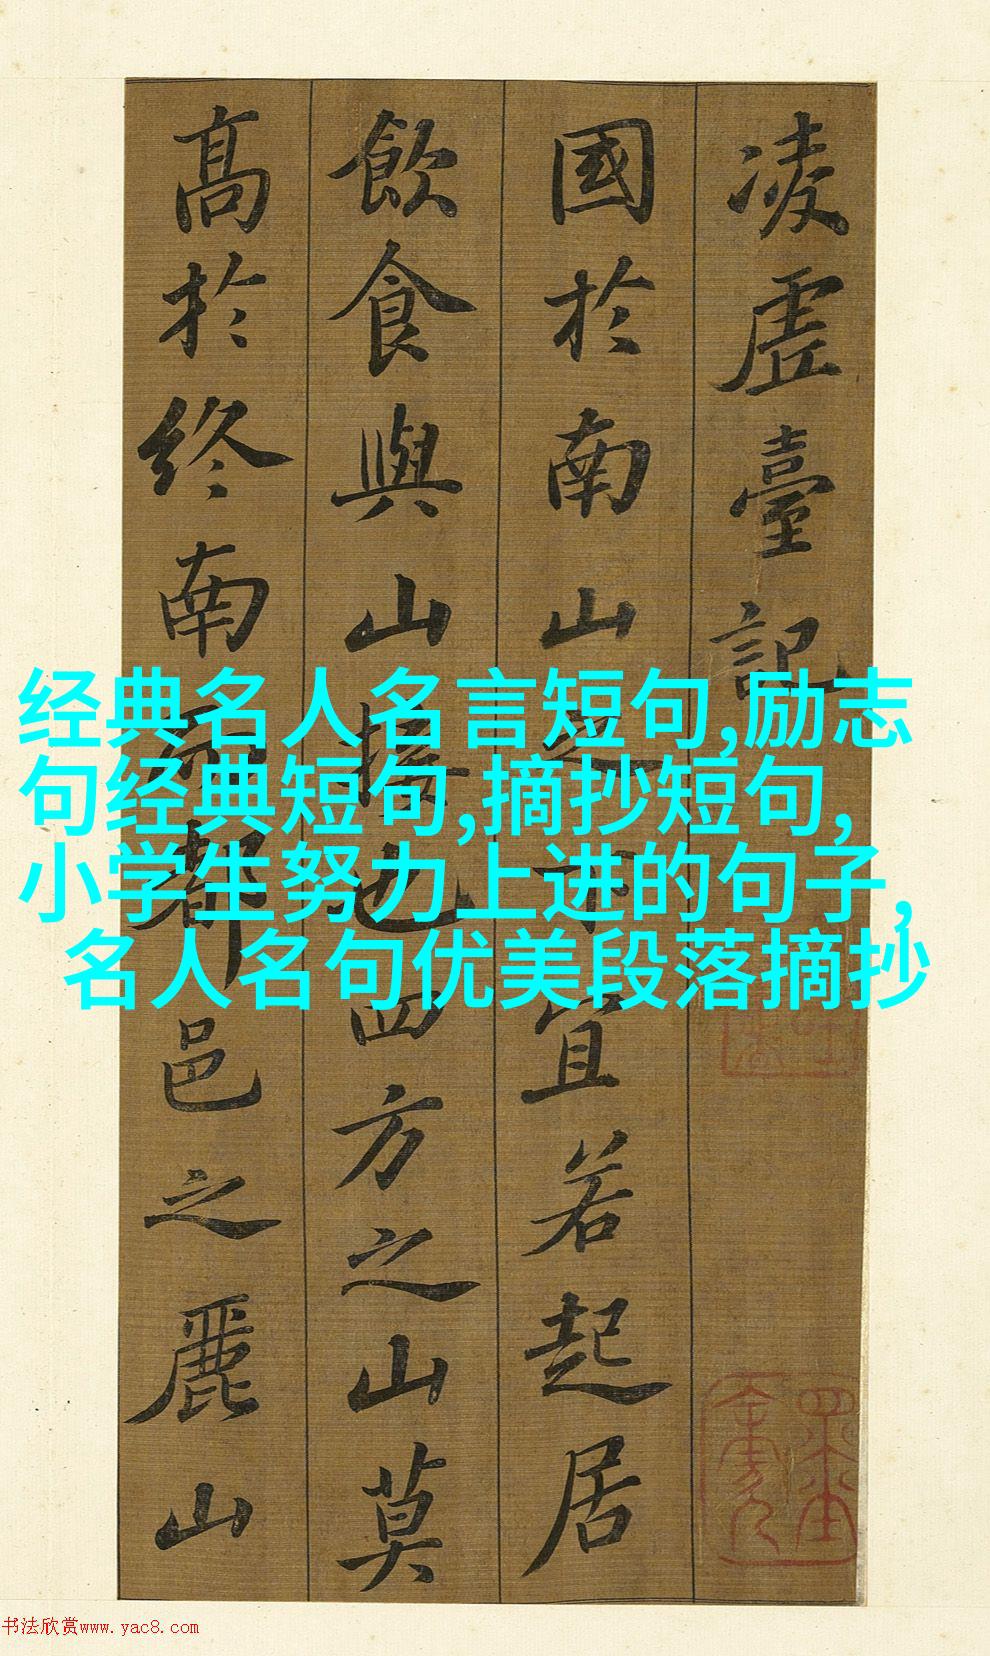 凌虛臺記
國於南山之下宜若起居
飲食與山接也四方之山莫
高於終南而都邑之麗山
经典名人名言短句,励志
句经典短句,摘抄短句,
小学生努力上进的句子,
名人名句优美段落摘抄
书法欣赏www.yac8.com